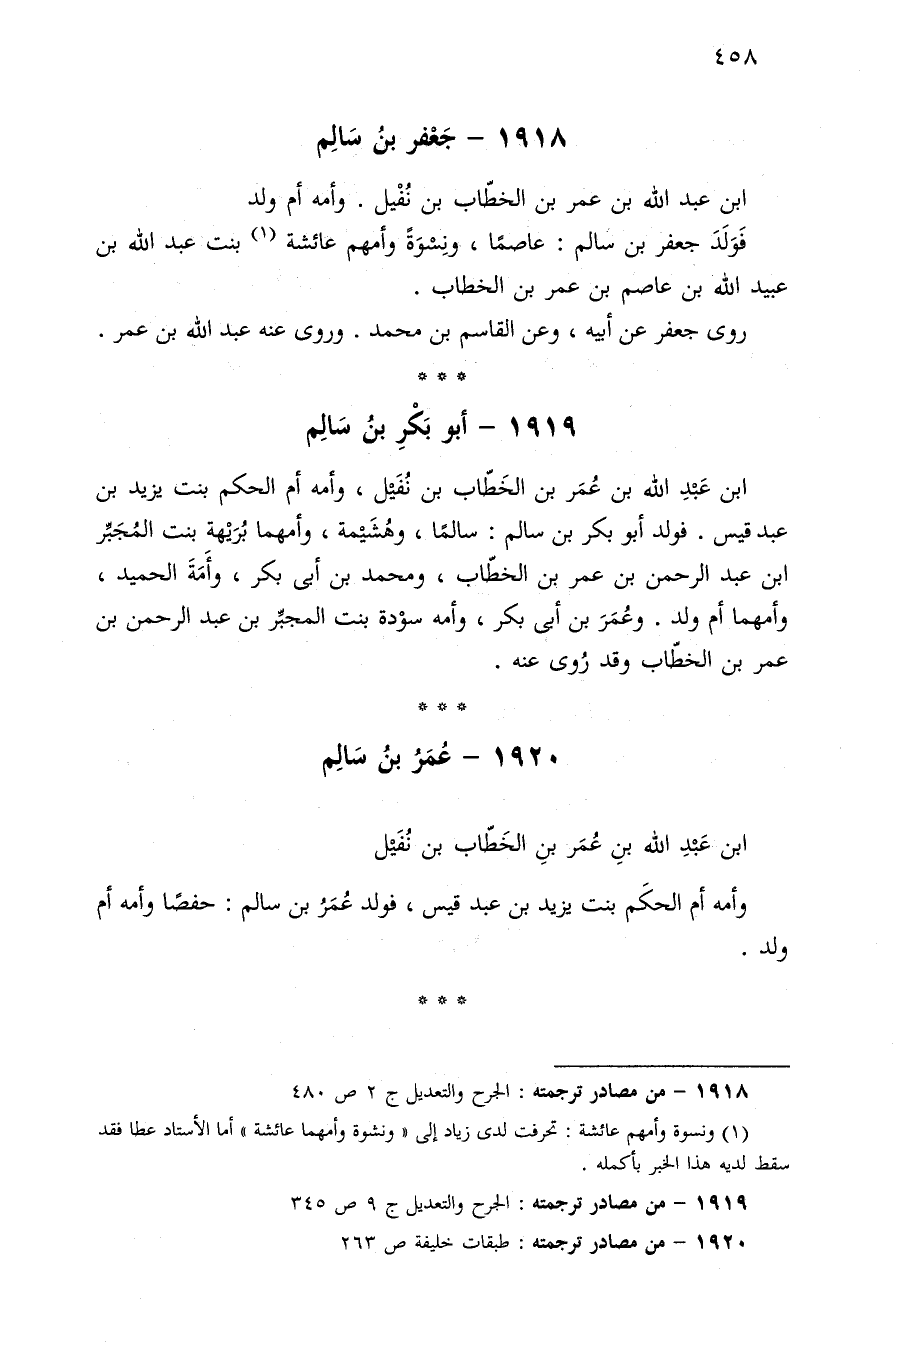 ٤٥٨
١٩١٨ – جَعْفر بنُ سَالِم
ابن عبد الله بن عمر بن الخطّاب بن نُفْيل . وأمه أم ولد
فَوَلَدَ جعفر بن سالم : عاصمًا ، ونِسْوَةً وأمهم عائشة (١) بنت عبد الله بن
عبيد الله بن عاصم بن عمر بن الخطاب .
روى جعفر عن أبيه ، وعن القاسم بن محمد . وروى عنه عبد الله بن عمر .
* * *
١٩١٩ – أبو بَكْرِ بنُ سَالِم
ابن عَبْدِ الله بن عُمَر بن الخَطّاب بن نُفَيْل ، وأمه أم الحكم بنت يزيد بن
عبد قيس . فولد أبو بكر بن سالم : سالمًا ، وهُشَيْمة ، وأمهما بُرَيْهة بنت المُجَبِّر
ابن عبد الرحمن بن عمر بن الخطّاب ، ومحمد بن أبى بكر ، وأَمَةَ الحميد ،
وأمهما أم ولد . وعُمَرَ بن أبى بكر ، وأمه سوْدة بنت المجبِّر بن عبد الرحمن بن
عمر بن الخطّاب وقد رُوى عنه .
* * *
١٩٢٠ – عُمَرُ بنُ سَالِم
ابن عَبْدِ الله بنِ عُمَر بنِ الخَطّاب بن نُفَيْل
وأمه أم الحكَم بنت يزيد بن عبد قيس ، فولد عُمَرُ بن سالم : حفصًا وأمه أم
ولد .
* * *
١٩١٨ – من مصادر ترجمته : الجرح والتعديل ج ٢ ص ٤٨٠
(١) ونسوة وأمهم عائشة : تحرفت لدى زياد إلى « ونشوة وأمهما عائشة » أما الأستاد عطا فقد
سقط لديه هذا الخبر بأكمله .
١٩١٩ – من مصادر ترجمته : الجرح والتعديل ج ٩ ص ٣٤٥
١٩٢٠ – من مصادر ترجمته : طبقات خليفة ص ٢٦٣